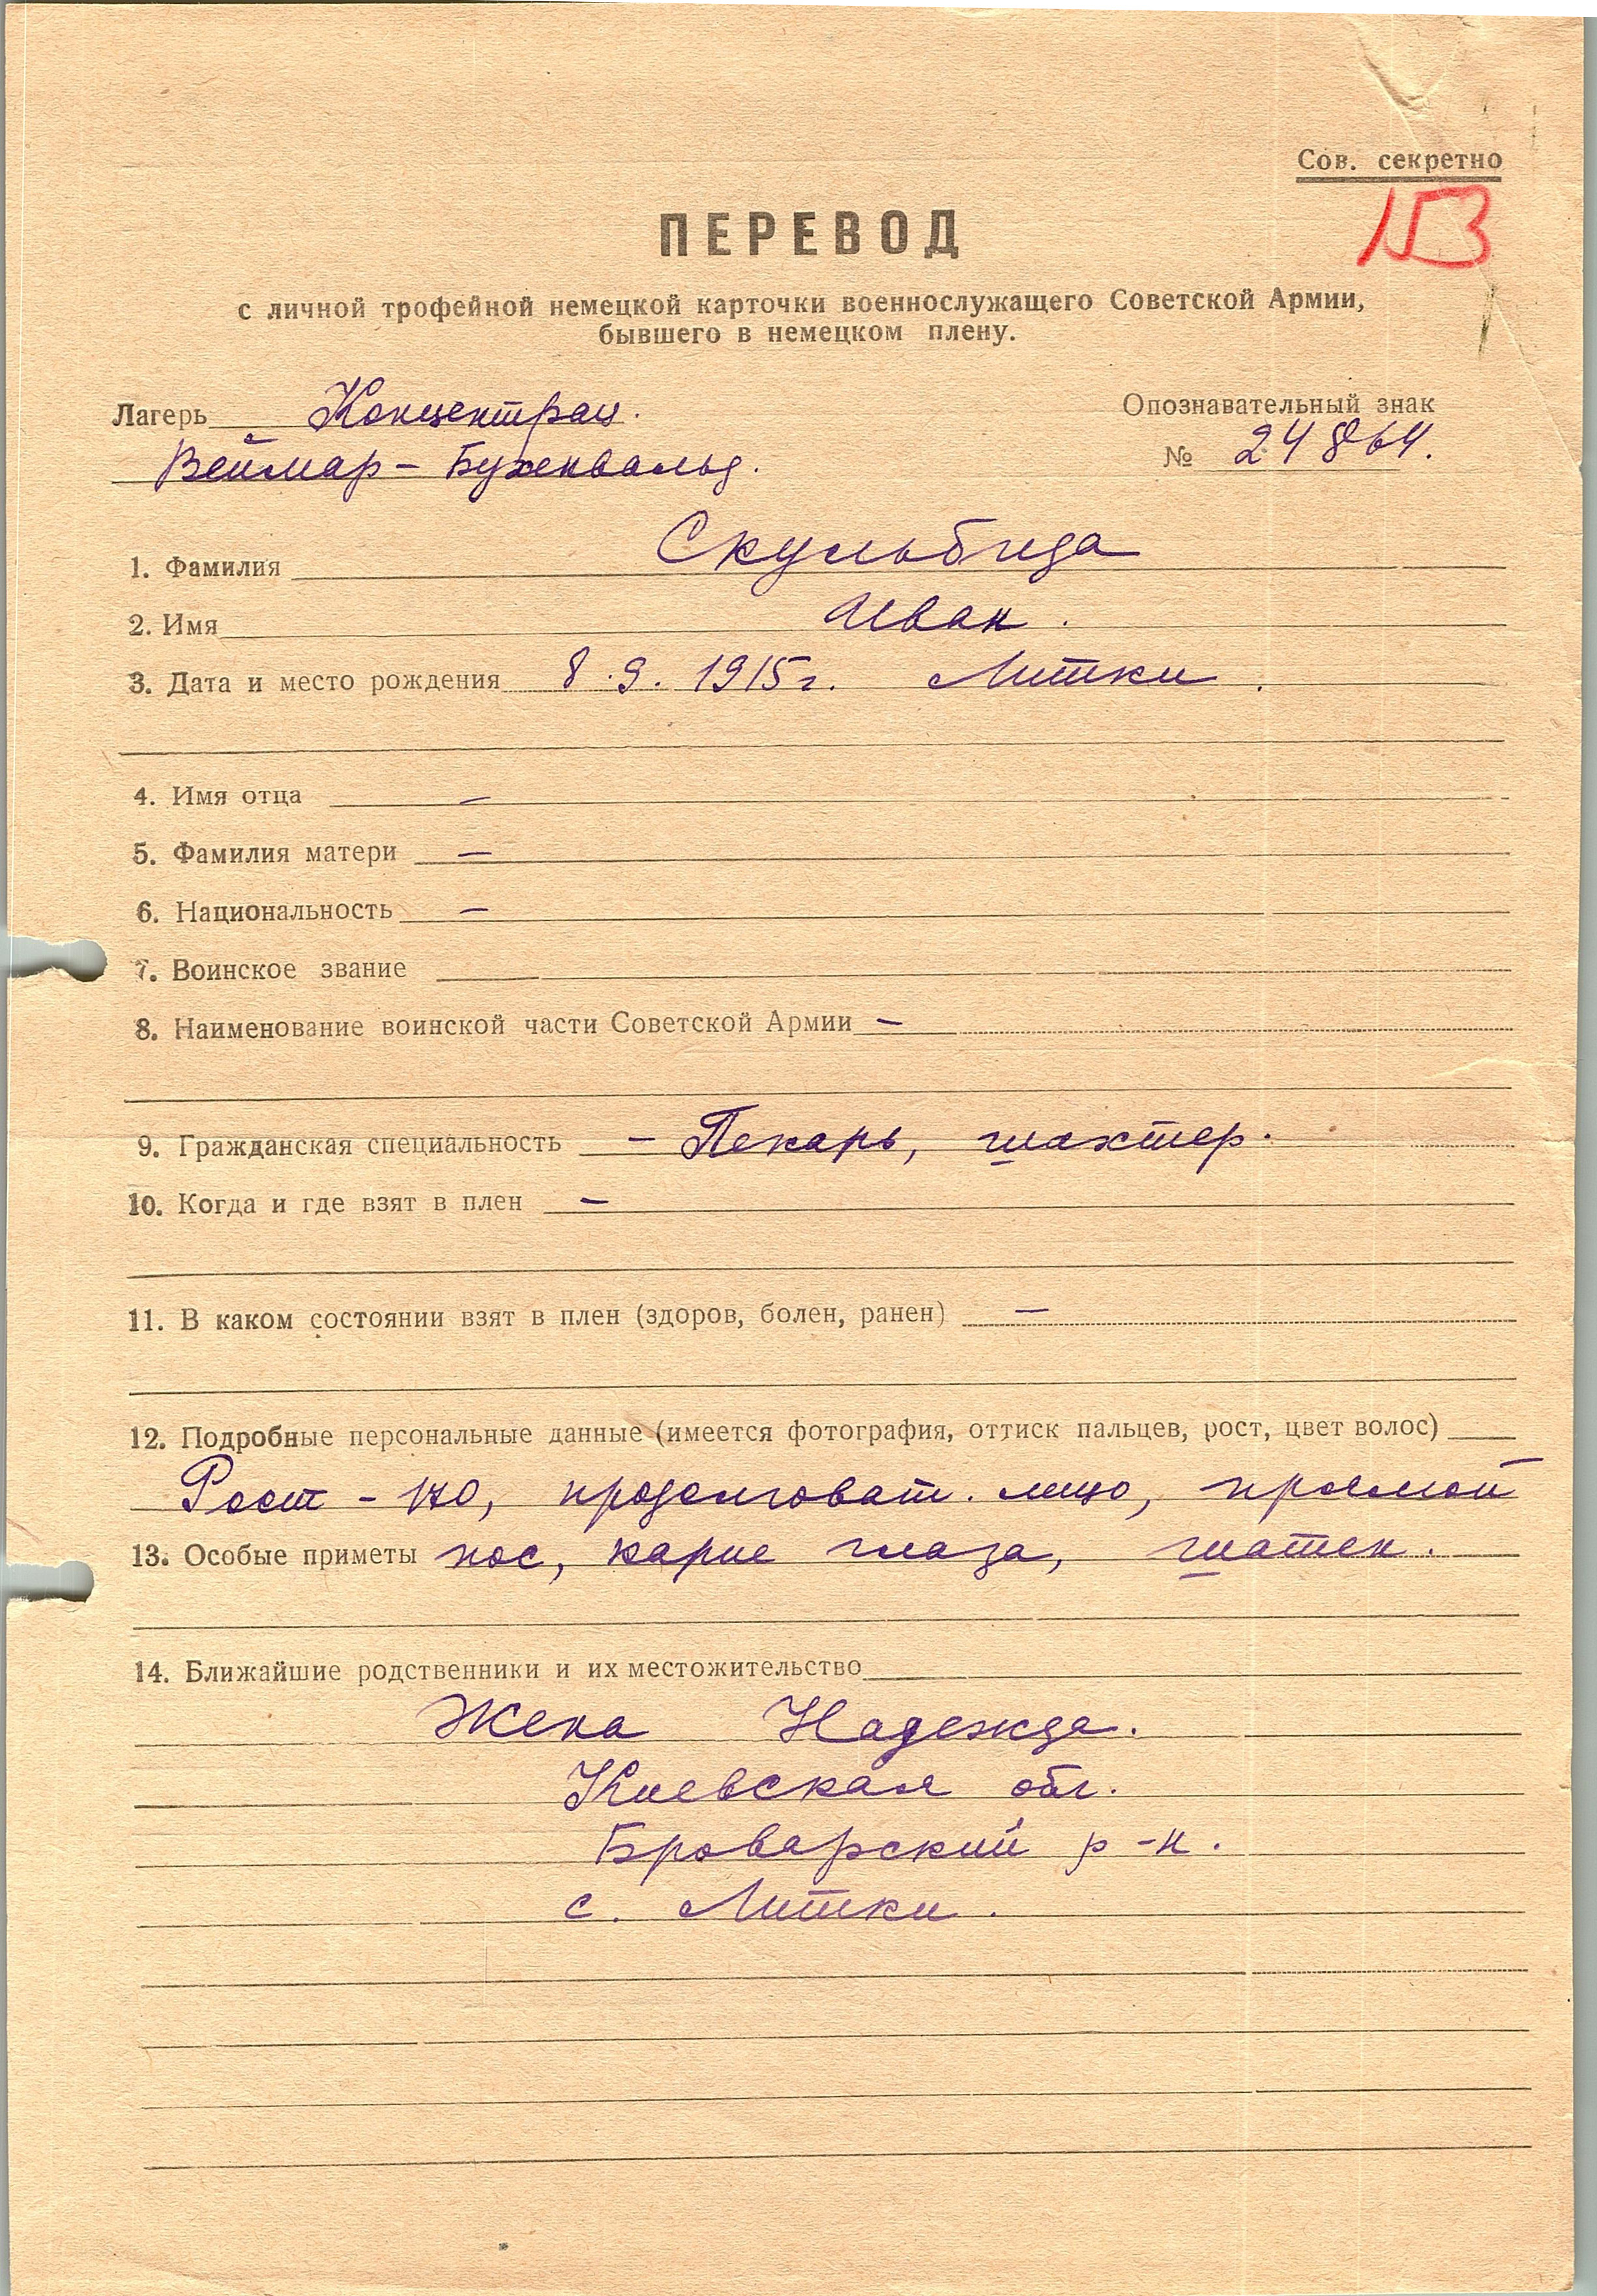 Сов. секретно
153
ПЕРЕВОД
с личной трофейной немецкой карточки военнослужащего Советской Армии,
бывшего в немецком плену.
Лагерь Концентрац.
Опознавательный знак
Веймар - Бухенвальд.
№ 24864.
1. Фамилия Скульбида
2. Имя Иван.
3. Дата и место рождения 8.9.1915г. Литки.
4. Имя отца —
5. Фамилия матери —
6. Национальность —
7. Воинское звание
8. Наименование воинской части Советской Армии —
9. Гражданская специальность - Пекарь, шахтер.
10. Когда и где взят в плен —
11. В каком состоянии взят в плен (здоров, болен, ранен) —
12. Подробные персональные данные (имеется фотография, оттиск пальцев, рост, цвет волос)
Рост - 170, продолговат. лицо, прямой
13. Особые приметы нос, карие глаза, шатен.
14. Ближайшие родственники и их местожительство
Жена Надежда.
Киевская обл.
Броварский р-н.
с. Литки.